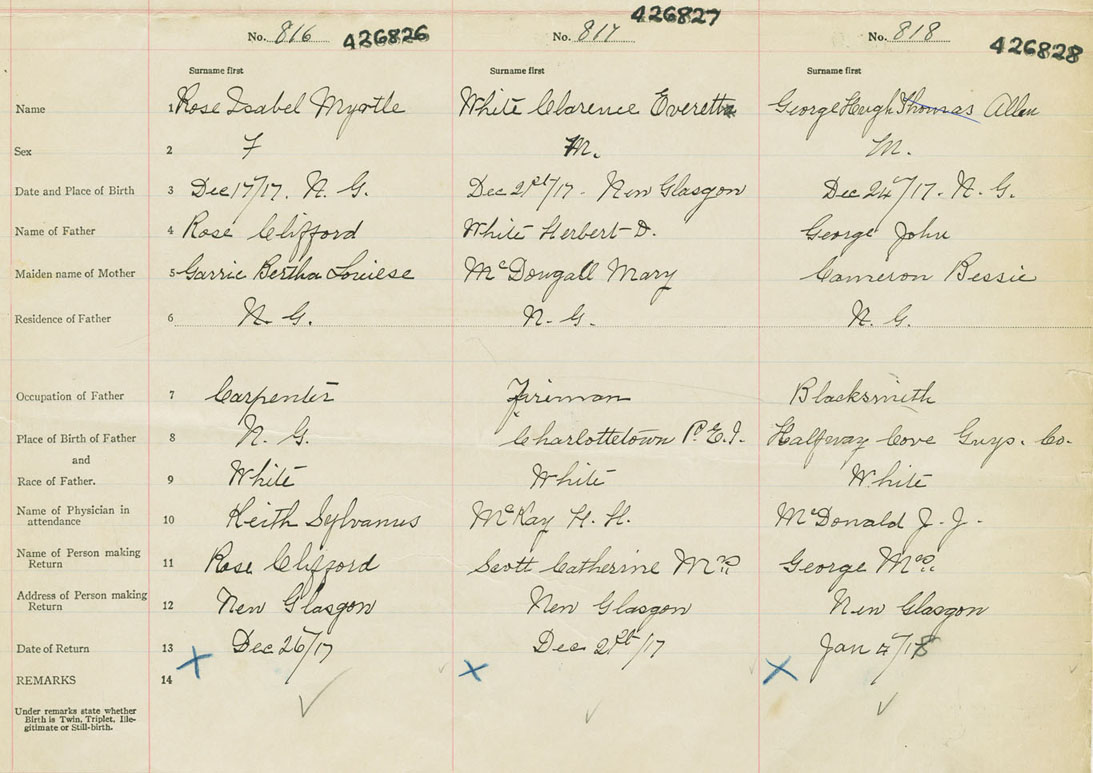 No. 816 426826 No. 817 426827 No. 818 426828
Surname first Surname first Surname first
Name 1 Rose Isabel Myrtle White Clarence Everett George Hugh Thomas Allen
Sex 2 F M. M.
Date and Place of Birth 3 Dec 17/17. N. G. Dec 21st/17 - New Glasgow Dec 24/17. N. G.
Name of Father 4 Rose Clifford White Herbert D. George John
Maiden name of Mother 5 Garrie Bertha Louiese McDougall Mary Cameron Bessie
Residence of Father 6 N. G. N. G. N. G.
Occupation of Father 7 Carpenter Fireman Blacksmith
Place of Birth of Father 8 N. G. Charlottetown P.E.I. Halfway Cove Guys. Co.
and
Race of Father. 9 White White White
Name of Physician in
attendance 10 Keith Sylvanus McKay H. H. McDonald J. J.
Name of Person making
Return 11 Rose Clifford Scott Catherine Mrs. George Mrs.
Address of Person making
Return 12 New Glasgow New Glasgow New Glasgow
Date of Return 13 Dec 26/17 Dec /17 Jan /18
REMARKS 14
Under remarks state whether
Birth is Twin, Triplet, Ille-
gitimate or Still-birth.